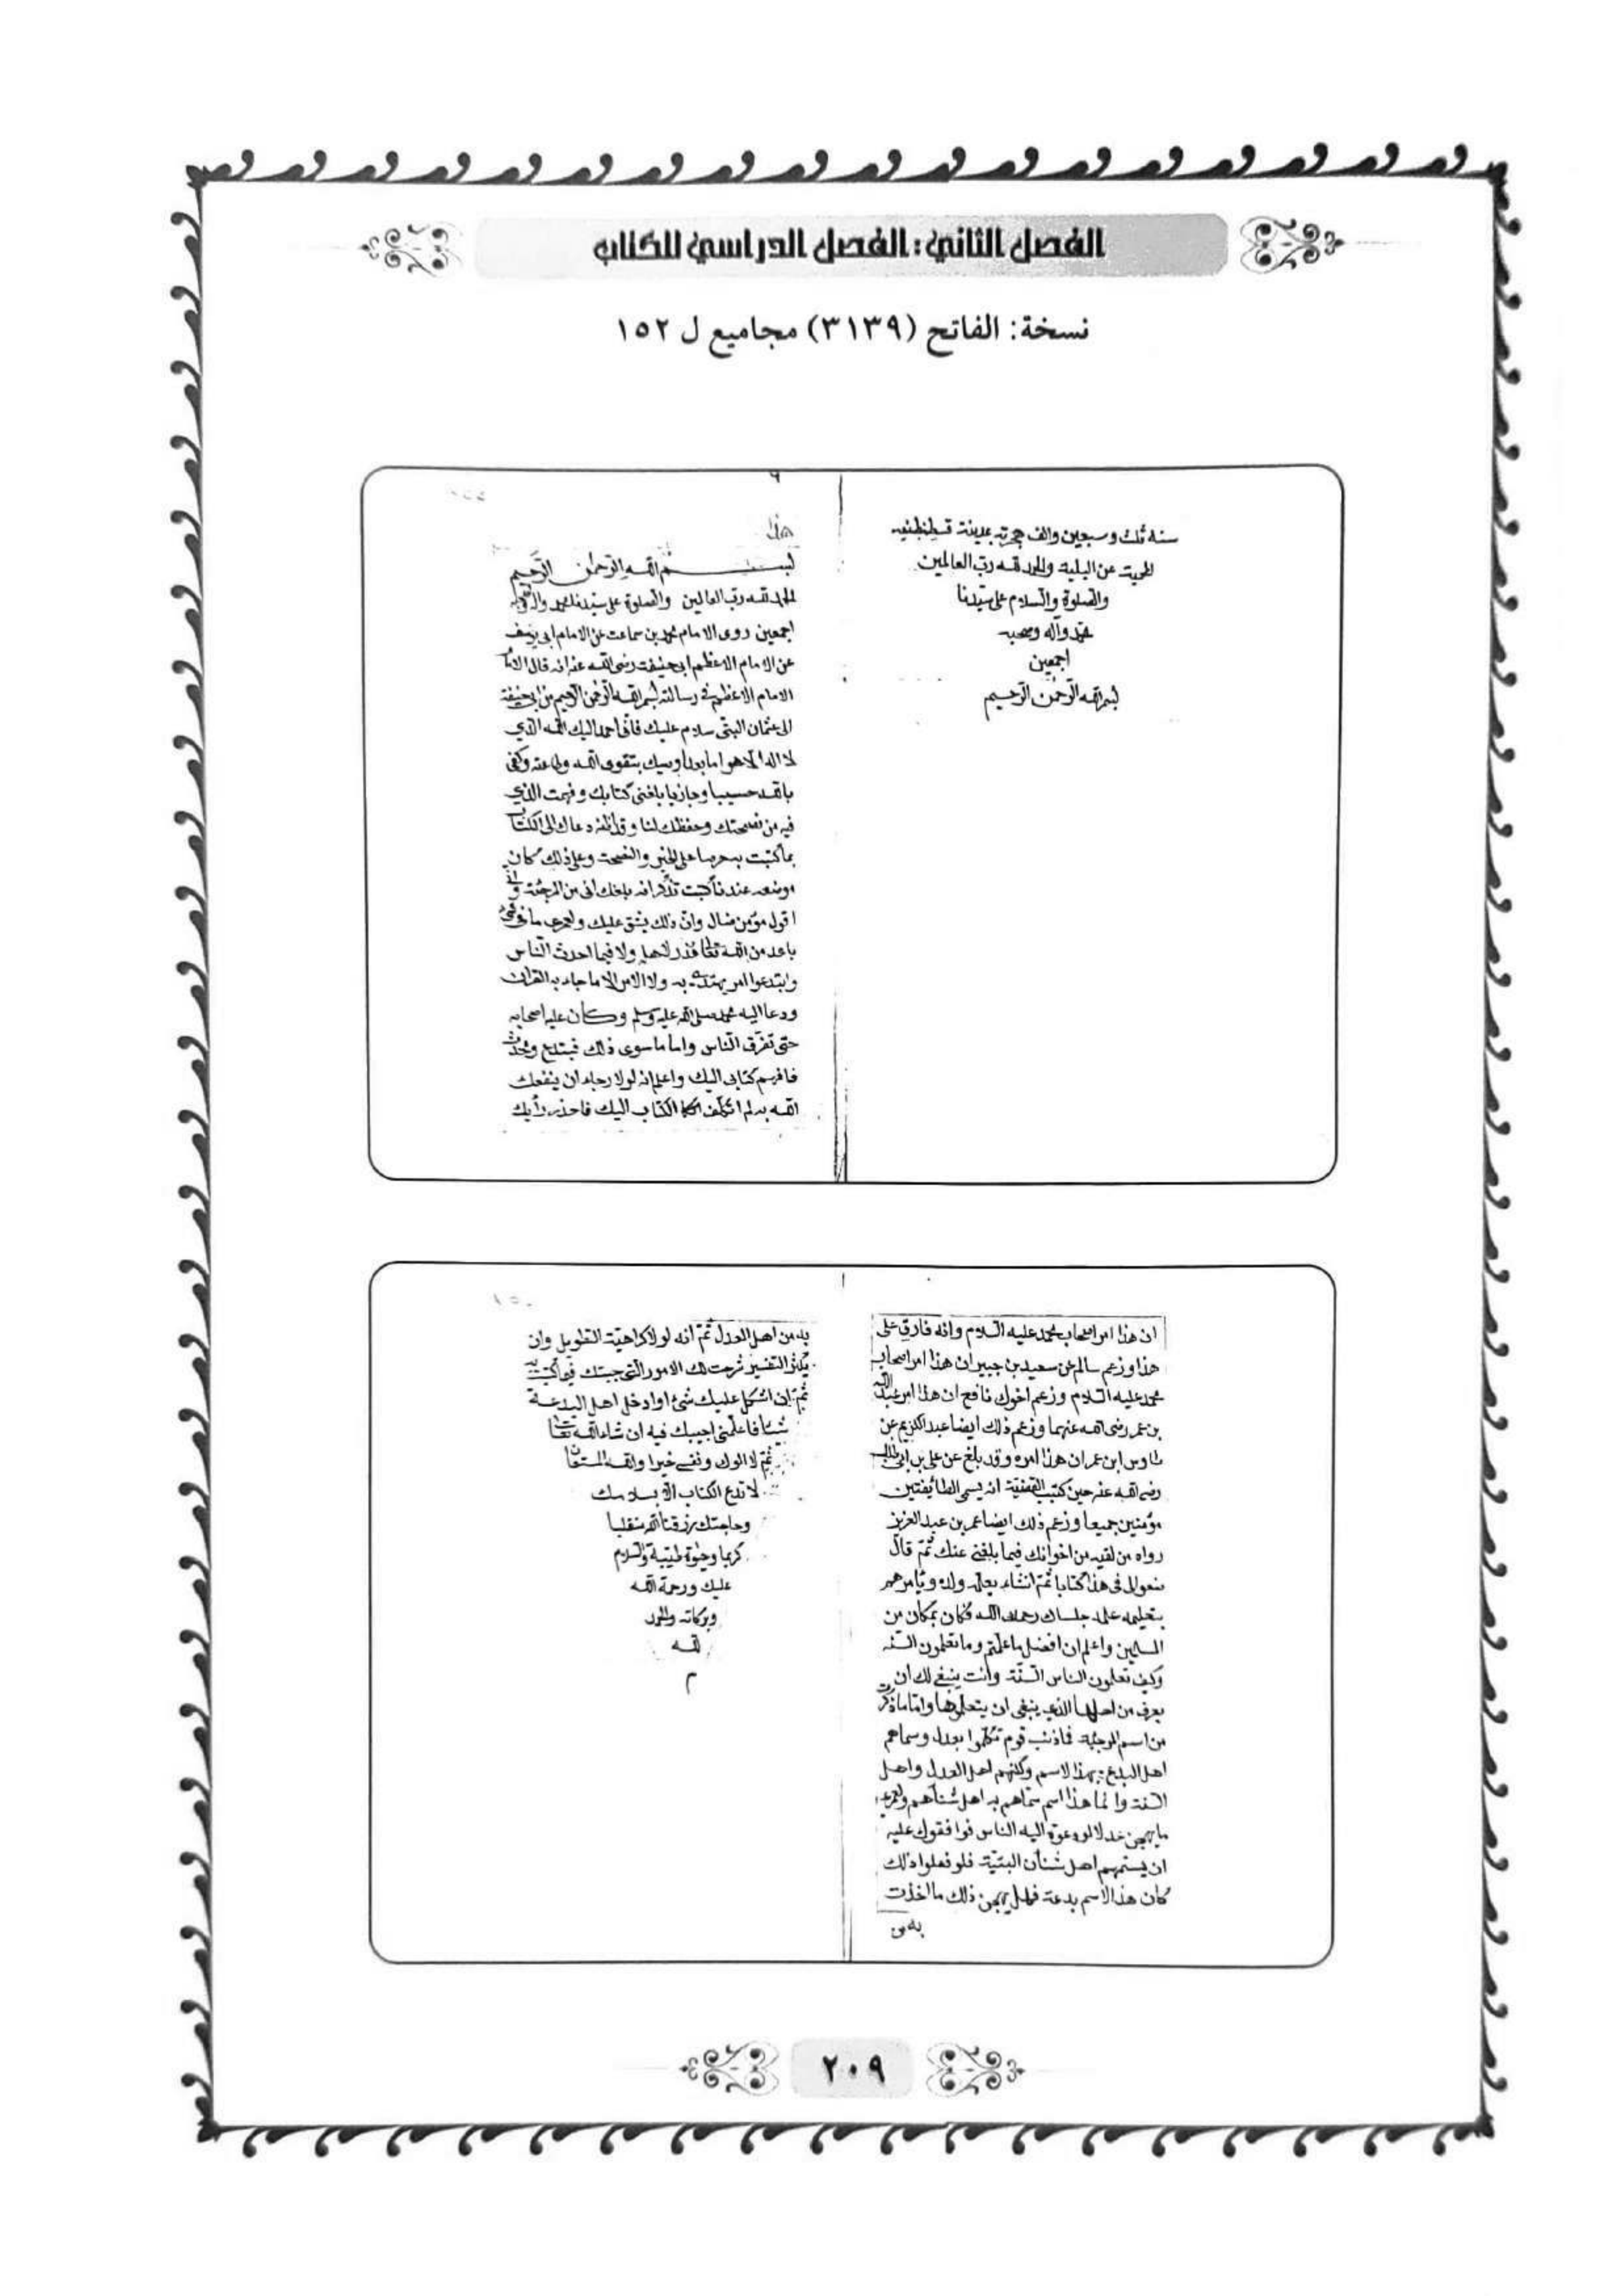 الفصل الثاني: الفصل الدراسي للكتاب
نسخة: الفاتح (٣١٣٩) مجاميع ل ١٥٢
سنة ثلث وسبعين والف هجرية بمدينة قسطنطنيه
المحمية عن البلية والحمد لله رب العالمين
والصلوة والسلام على سيدنا
محمد وآله وصحبه
اجمعين
بسم الله الرحمن الرحيم
هذا
بسم الله الرحمن الرحيم
الحمد لله رب العالمين والصلوة على سيدنا محمد وآله
اجمعين روى الامام محمد بن سماعت عن الامام ابي يوسف
عن الامام الاعظم ابي حنيفة رضى الله عنه انه قال
الامام الاعظم في رسالته بسم الله الرحمن الرحيم من ابي حنيفة
الى عثمان البتى سلام عليك فانى احمد اليك الله الذي
لا اله الا هو اما بعد اوصيك بتقوى الله وطاعته وكفى
بالله حسيبا وجازيا بلغنى كتابك وفهمت الذي
فيه من نصيحتك وحفظك لنا وقد دعاك الى الكتاب
بما كتبت به حرصا على الخير والنصيحة وعلى ذلك كان
موضعه عندنا كتبت تذكر انه بلغك انى من المرجئة وانى
اقول مؤمن ضال وان ذلك يشق عليك ولعمرى ما فى شئ
باعد من الله تعالى عذر لاهله ولا فيما احدث الناس
وابتدعوا امر يهتدى به ولا الامر الا ما جاء به القران
ودعا اليه محمد صلى الله عليه وسلم وكان عليه اصحابه
حتى تفرق الناس واما ما سوى ذلك فمبتدع ومحدث
فافهم كتابى اليك واعلم انه لولا رجاء ان ينفعك
الله به لم اتكلف الكتاب اليك فاحذر رأيك
ان هذا امر اصحاب محمد عليه السلام وانه فارق على
هذا وزعم سالم عن سعيد بن جبير ان هذا امر اصحاب
محمد عليه السلام وزعم اخوك نافع ان هذا امر عبد الله
بن عمر رضى الله عنهما وزعم ذلك ايضا عبد الكريم عن
طاوس ابن عمران هذا امره وقد بلغ عن على بن ابى طالب
رضى الله عنه حين كتب القضية انه يسمى الطائفتين
مؤمنين جميعا وزعم ذلك ايضا عمر بن عبد العزيز
رواه من لقيه من اخوانك فيما بلغنى عنك ثم قال
ضعوا لى فى هذا كتابا ثم انشاء يعلمه ولده ويأمرهم
بتعليمه علمه جلساك رحمك الله فكان بمكان من
المسلمين واعلم ان افضل ما علمتم وما تعلمون السنة
وكيف تعلمون الناس السنة وانت ينبغى لك ان
يعرف من اهلها الذي ينبغى ان يتعلموها واما ما ذكرت
من اسم المرجئة فما ذنب قوم تكلموا بعدل وسماهم
اهل البدع بهذا الاسم ولكنهم اهل العدل واهل
السنة وانما هذا اسم سماهم به اهل شنأنهم ولعمرى
ما يهجن عدلا لو دعوت اليه الناس فوافقوك عليه
ان يسمهم اهل شنأن البتية فلو فعلوا ذلك
كان هذا الاسم بدعة فهل يهجن ذلك ما اخذت
به من
به من اهل العدل ثم انه لولا كراهية التطويل وان
يكثر التفسير شرحت لك الامور التى جبتك فيما كتبت به
ثم ان اشكل عليك شئ او ادخل اهل البدعة
شيئا فاعلمنى اجيبك فيه ان شاء الله تعالى
ثم لا الوك ونفسى خيرا والله المستعان
لا تدع الكتاب الى بسلامك
وحاجتك رزقنا الله منقلبا
كريما وحيوة طيبة والسلام
عليك ورحمة الله
وبركاته والحمد
لله
م
٢٠٩